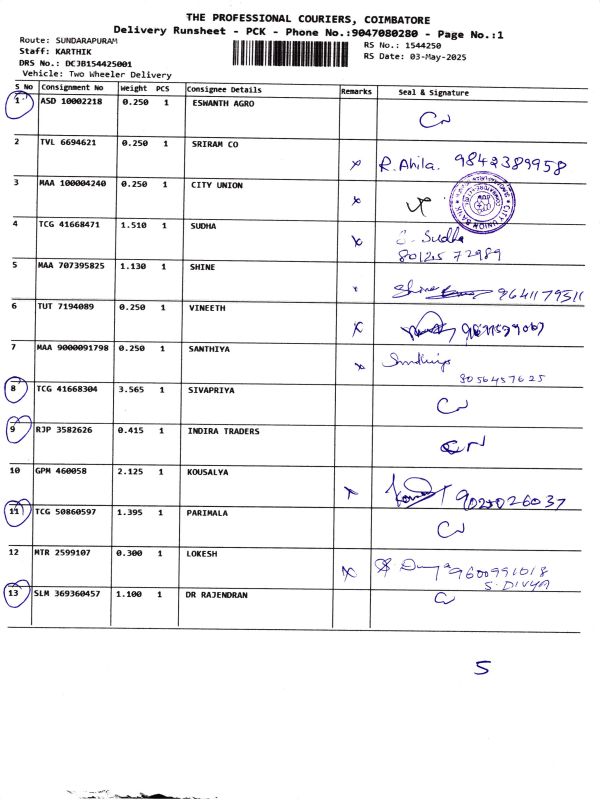 THE PROFESSIONAL COURIERS, COIMBATORE
Delivery Runsheet - PCK - Phone No.:9047080280 - Page No.:1
Route: SUNDARAPURAM
RS No.: 1544250
Staff: KARTHIK
RS Date: 03-May-2025
DRS No.: DCJB154425001
Vehicle: Two Wheeler Delivery
S No Consignment No Weight PCS Consignee Details Remarks Seal & Signature
1 ASD 10002218 0.250 1 ESWANTH AGRO CN
2 TVL 6694621 0.250 1 SRIRAM CO x R. Ahila. 9842389958
3 MAA 100004240 0.250 1 CITY UNION x CITY UNION BANK
4 TCG 41668471 1.510 1 SUDHA x S. Sudha
80125 72989
5 MAA 707395825 1.130 1 SHINE x Shine 9641179511
6 TUT 7194089 0.250 1 VINEETH x
7 MAA 9000091798 0.250 1 SANTHIYA x Sandhiya
8056457625
8 TCG 41668304 3.565 1 SIVAPRIYA CN
9 RJP 3582626 0.415 1 INDIRA TRADERS CN
10 GPM 460058 2.125 1 KOUSALYA x
11 TCG 50860597 1.395 1 PARIMALA CN
12 MTR 2599107 0.300 1 LOKESH x 9600991018
S. DIVYA
13 SLM 369360457 1.100 1 DR RAJENDRAN CN
5